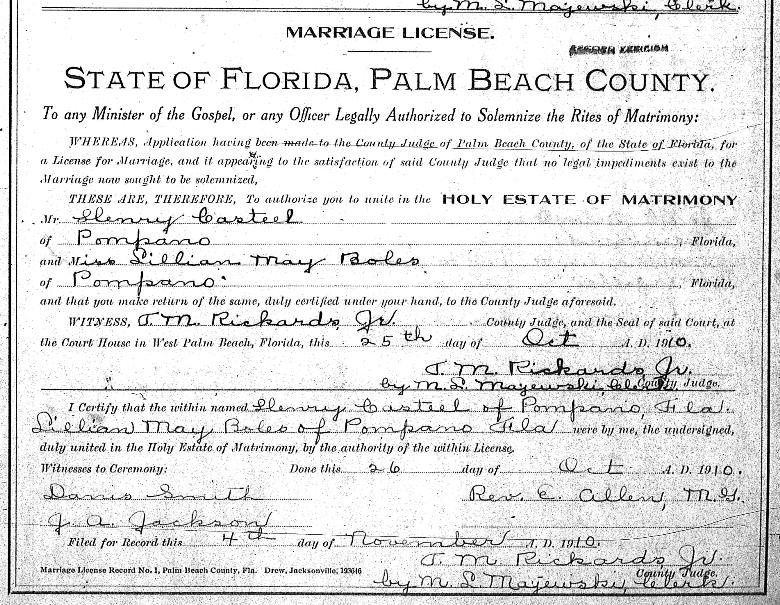 by M. L. Majewski, Clerk.
MARRIAGE LICENSE.
STATE OF FLORIDA, PALM BEACH COUNTY.
To any Minister of the Gospel, or any Officer Legally Authorized to Solemnize the Rites of Matrimony:
WHEREAS, Application having been made to the County Judge of Palm Beach County, of the State of Florida, for
a License for Marriage, and it appearing to the satisfaction of said County Judge that no legal impediments exist to the
Marriage now sought to be solemnized,
THESE ARE, THEREFORE, To authorize you to unite in the HOLY ESTATE OF MATRIMONY
Mr. Henry Casteel
of Pompano Florida,
and Miss Lillian May Boles
of Pompano Florida,
and that you make return of the same, duly certified under your hand, to the County Judge aforesaid.
WITNESS, T. M. Rickards, Jr. County Judge, and the Seal of said Court, at
the Court House in West Palm Beach, Florida, this 25th day of Oct A. D. 1910.
T. M. Rickards, Jr.
by M. L. Majewski, Clerk County Judge.
I Certify that the within named Henry Casteel of Pompano, Fla.
Lillian May Boles of Pompano Fla were by me, the undersigned,
duly united in the Holy Estate of Matrimony, by the authority of the within License.
Witnesses to Ceremony: Done this 26 day of Oct A. D. 1910.
Smith Rev. C. Allen, M.G.
J. A. Jackson
Filed for Record this 4th day of November A. D. 1910.
T. M. Rickards, Jr.
County Judge.
Marriage License Record No. 1, Palm Beach County, Fla. Drew, Jacksonville, 193646
by M. L. Majewski, Clerk.